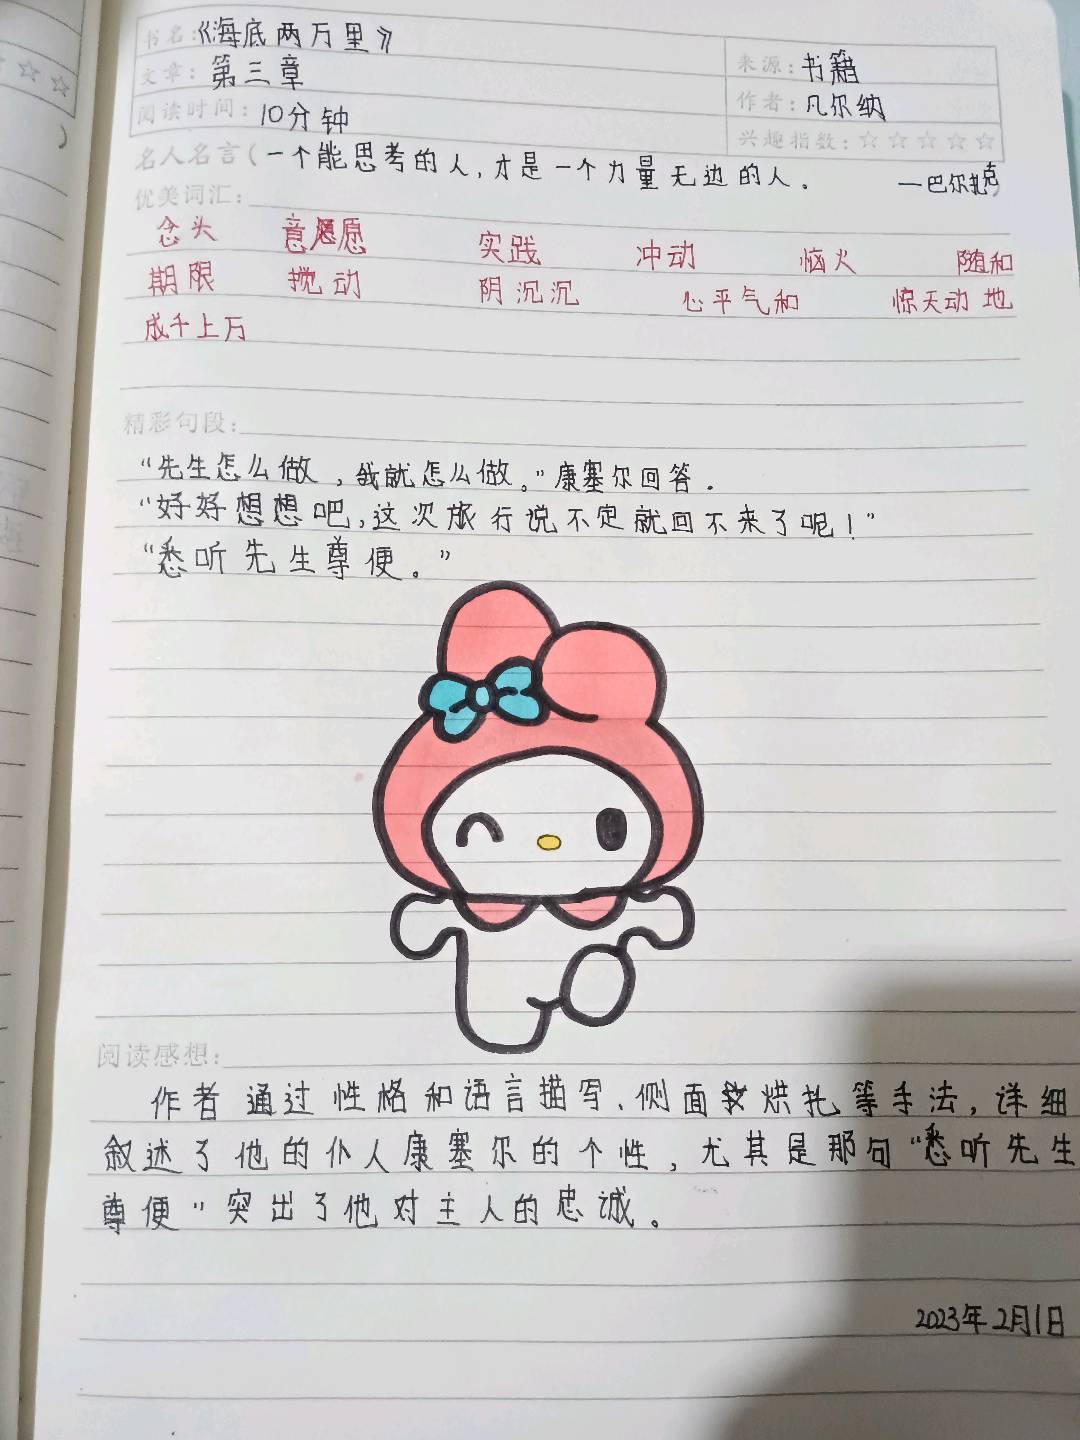 书名:《海底两万里》
文章: 第三章
来源: 书籍
阅读时间: 10分钟
作者: 凡尔纳
兴趣指数: ☆☆☆☆☆
名人名言(一个能思考的人,才是一个力量无边的人。 —巴尔扎克)
优美词汇:
念头 意愿 实践 冲动 恼火 随和
期限 搅动 阴沉沉 心平气和 惊天动地
成千上万
精彩句段:
“先生怎么做,我就怎么做。”康塞尔回答.
“好好想想吧,这次旅行说不定就回不来了呢!”
“悉听先生尊便。”
阅读感想:
作者通过性格和语言描写、侧面烘托等手法,详细
叙述了他的仆人康塞尔的个性,尤其是那句“悉听先生
尊便”突出了他对主人的忠诚。
2023年2月1日